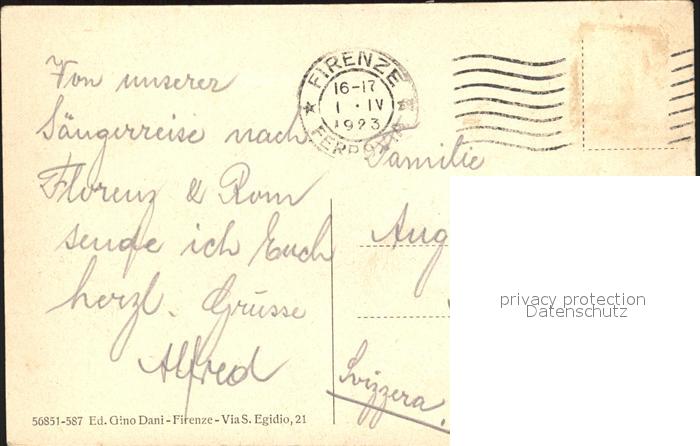 Von unserer
Sängerreise nach
Florenz & Rom
sende ich Euch
herzl. Grüsse
Alfred
FIRENZE
16-17
1 · IV
1923
FERROVIA
Familie
Aug
Svizzera.
privacy protection
Datenschutz
56851-587 Ed. Gino Dani - Firenze - Via S. Egidio, 21